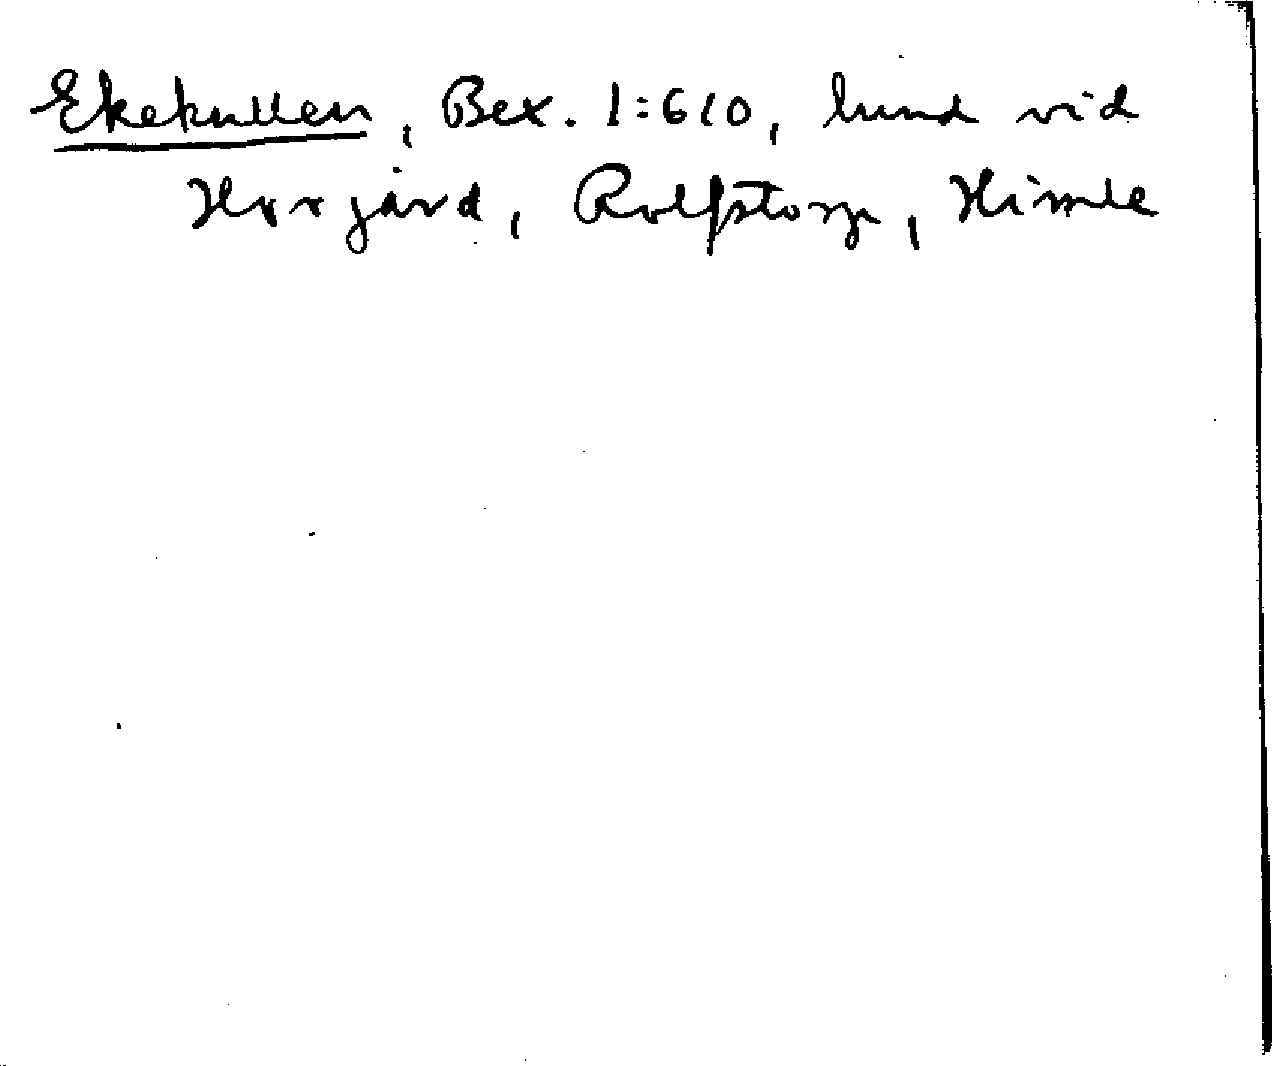 Ekekullen, Bex. 1:610, lund vid
Rolfstorp, Himle